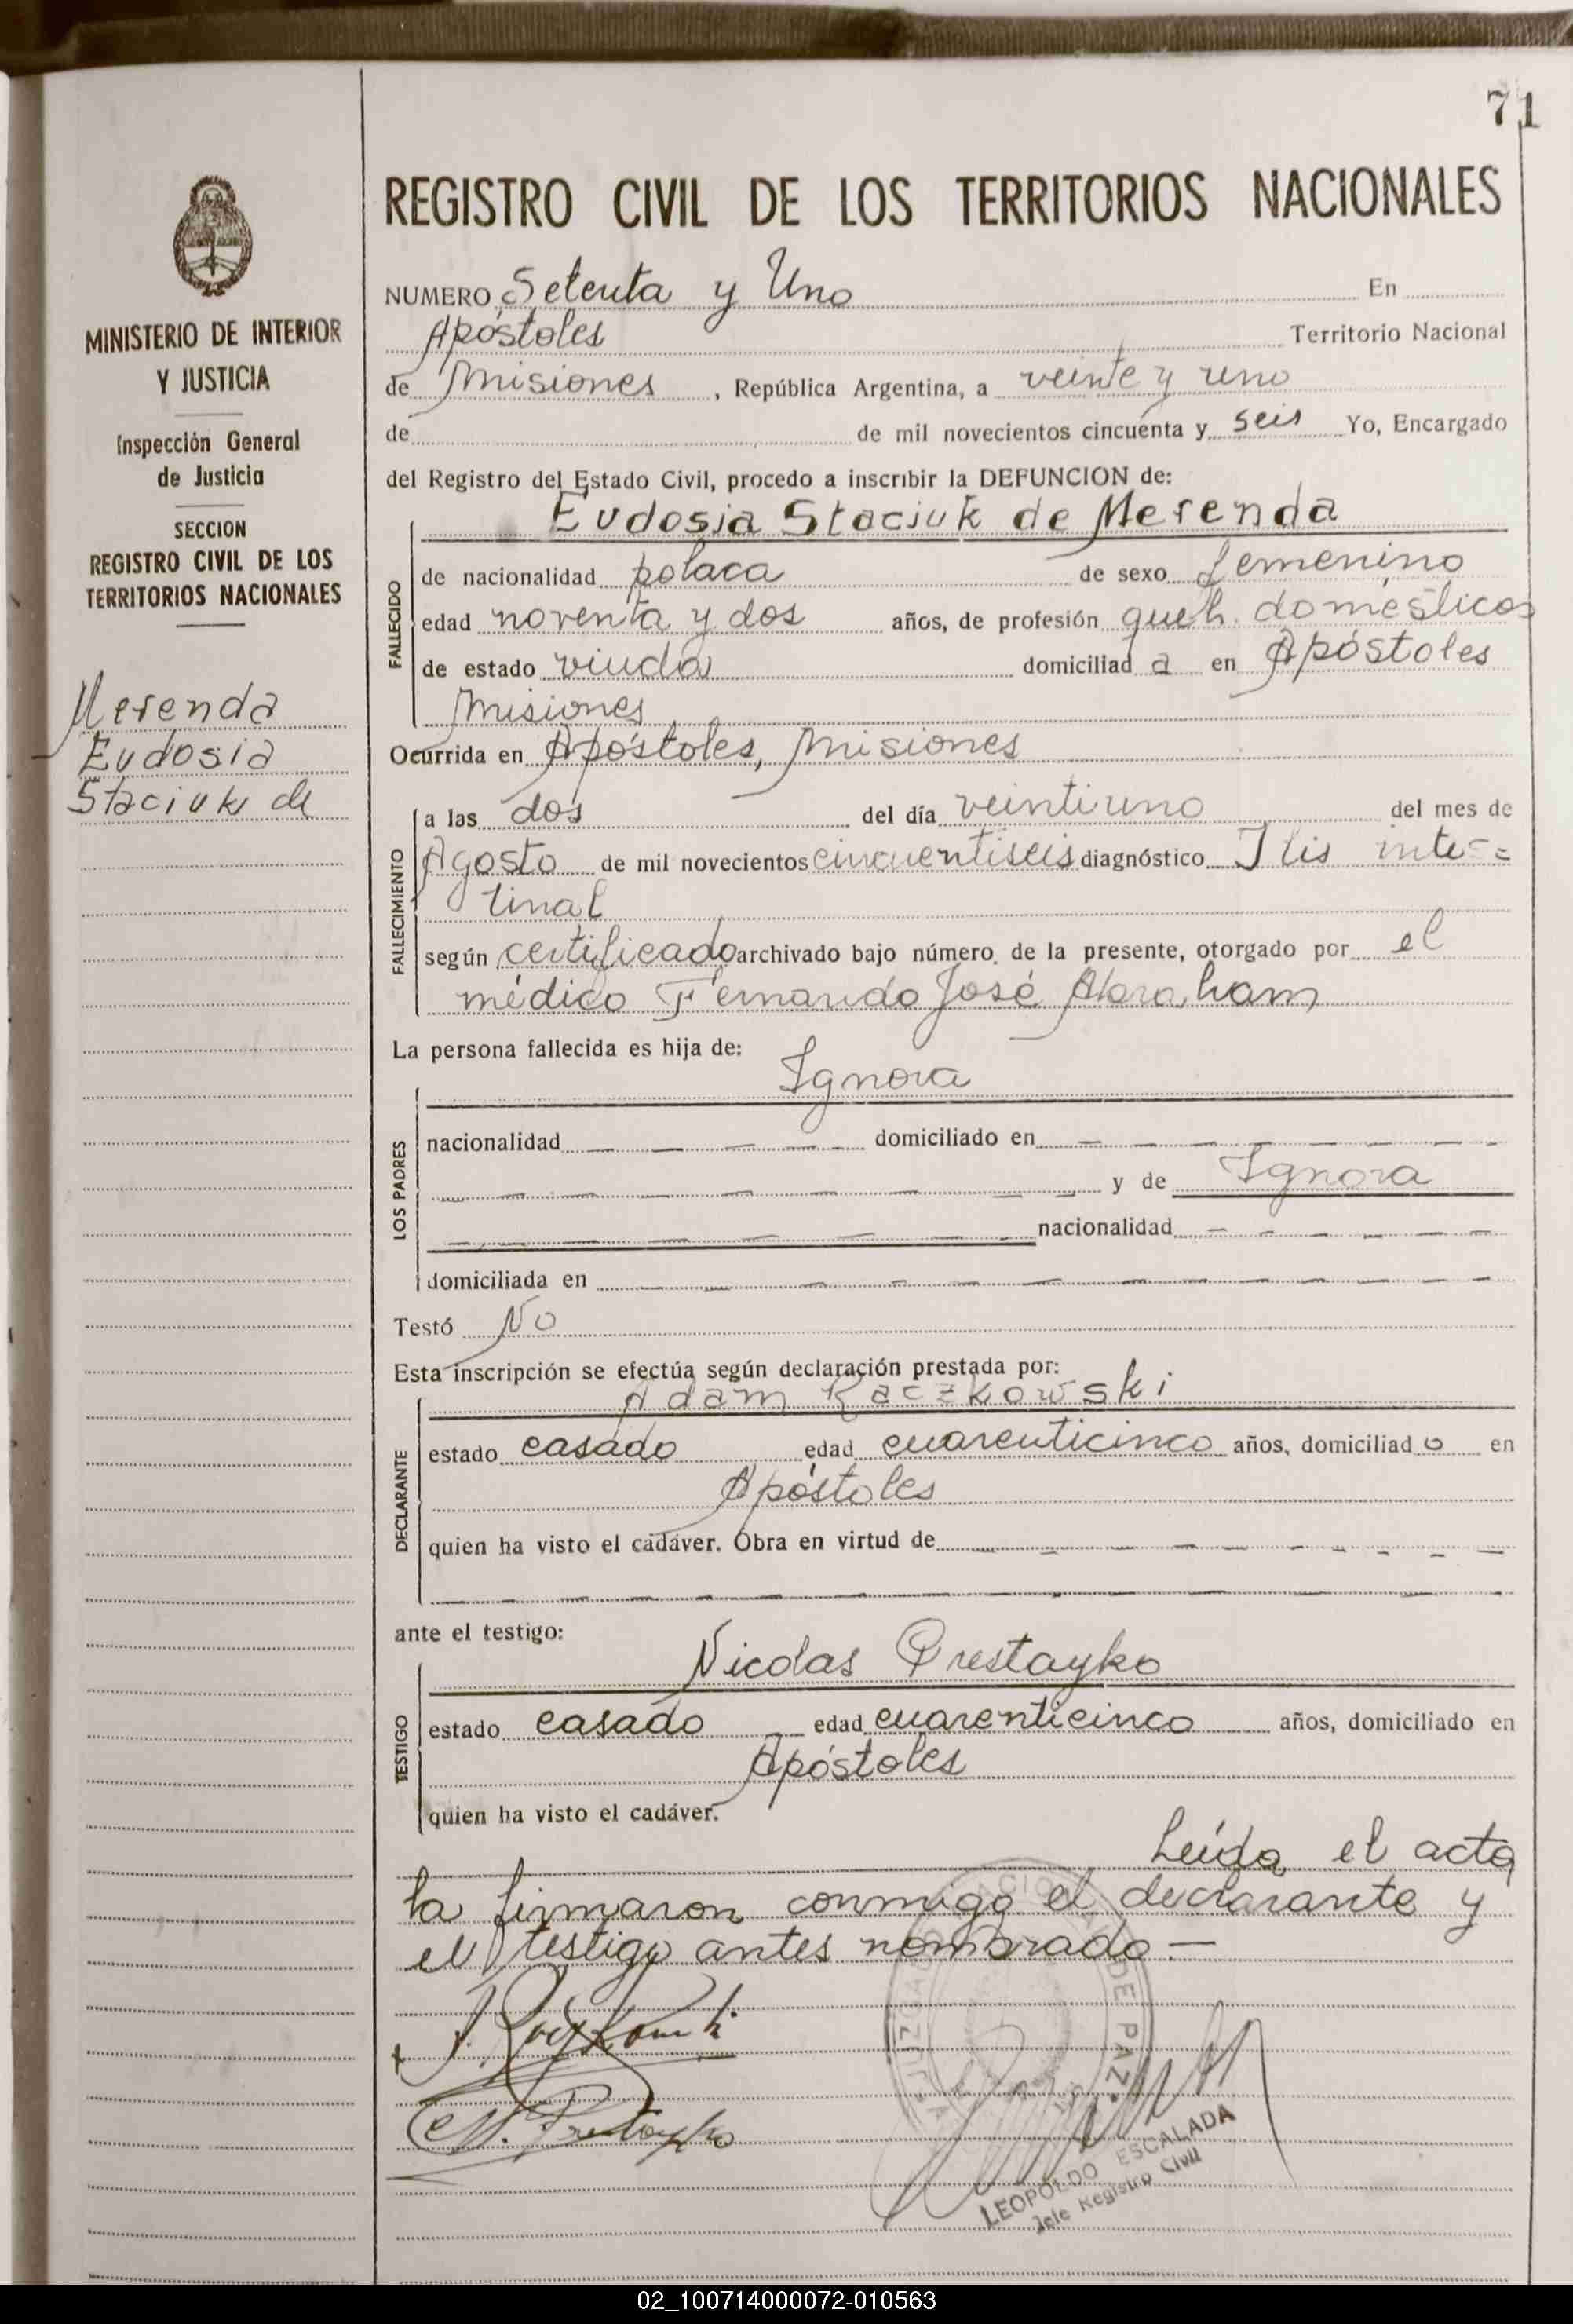 71
REGISTRO CIVIL DE LOS TERRITORIOS NACIONALES
MINISTERIO DE INTERIOR
Y JUSTICIA
Inspección General
de Justicia
SECCION
REGISTRO CIVIL DE LOS
TERRITORIOS NACIONALES
Merenda
Eudosia
Staciuk de
NUMERO Setenta y Uno En
Apóstoles Territorio Nacional
de Misiones, República Argentina, a veinte y uno
de de mil novecientos cincuenta y seis Yo, Encargado
del Registro del Estado Civil, procedo a inscribir la DEFUNCION de:
Eudosia Staciuk de Merenda
FALLECIDO
de nacionalidad polaca de sexo femenino
edad noventa y dos años, de profesión queh. domésticos
de estado viuda domiciliad a en Apóstoles
Misiones
Ocurrida en Apóstoles, Misiones
FALLECIMIENTO
a las dos del día veintiuno del mes de
Agosto de mil novecientos cincuentiseis diagnóstico
tinal
según certificado archivado bajo número de la presente, otorgado por el
médico Fernando José Abraham
La persona fallecida es hija de:
Ignora
LOS PADRES
nacionalidad — — — — domiciliado en — — — — — — — —
— — — — — — — — y de Ignora
— — — — — — — nacionalidad — — — — — —
domiciliada en — — — — — — — — — —
Testó No
Esta inscripción se efectúa según declaración prestada por:
Adam Kaczkowski
DECLARANTE
estado casado edad cuarenticinco años, domiciliad o en
Apóstoles
quien ha visto el cadáver. Obra en virtud de — — — — — — — —
ante el testigo:
Nicolas Prestayko
TESTIGO
estado casado edad cuarenticinco años, domiciliado en
Apóstoles
quien ha visto el cadáver.
Leída el acta
la firmaron conmigo el declarante y
el testigo antes nombrado.—
N. Prestayko
JUZGADO DE PAZ
LEOPOLDO ESCALADA
Jefe Registro Civil
02_100714000072-010563